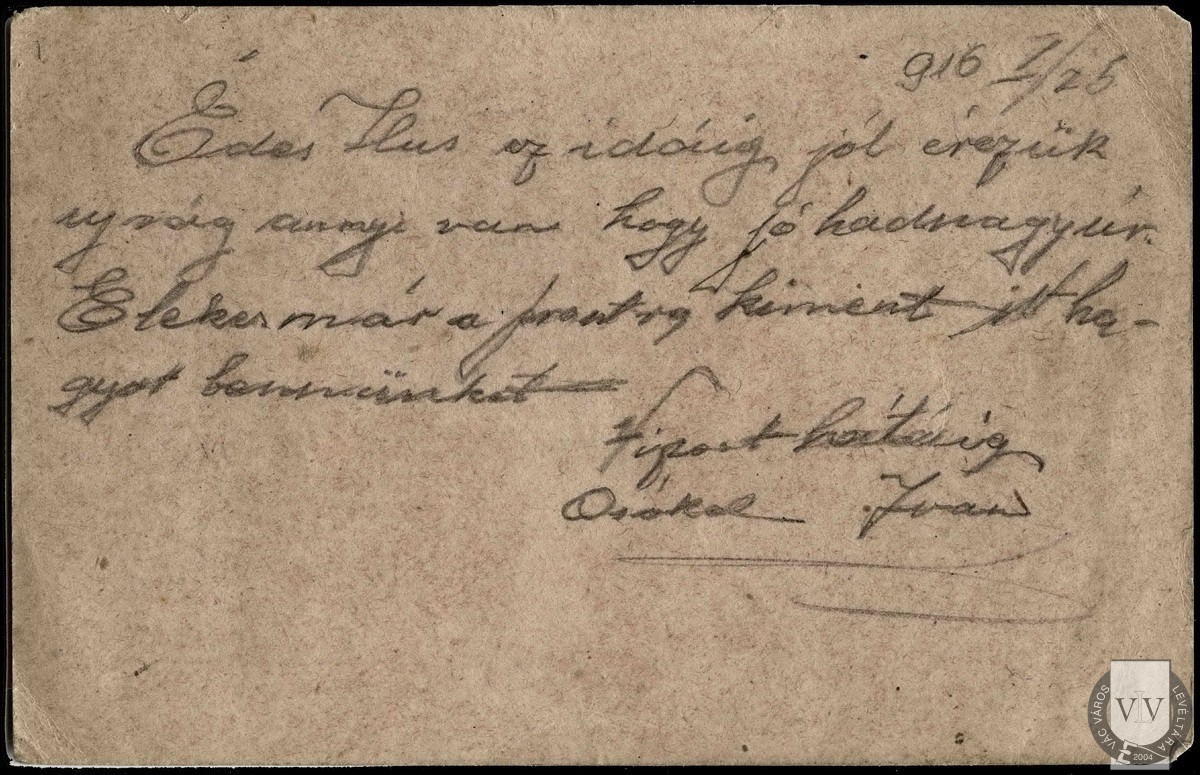 916 I/25
Édes Ilus ez idáig jól érezük
ujság annyi van hogy jó hadnagyúr
Elekes már a frontra kiment itt ha-
gyot bennünket
Viszont
Csókol Ivan
VÁC VÁROS LEVÉLTÁRA
VLV
2004